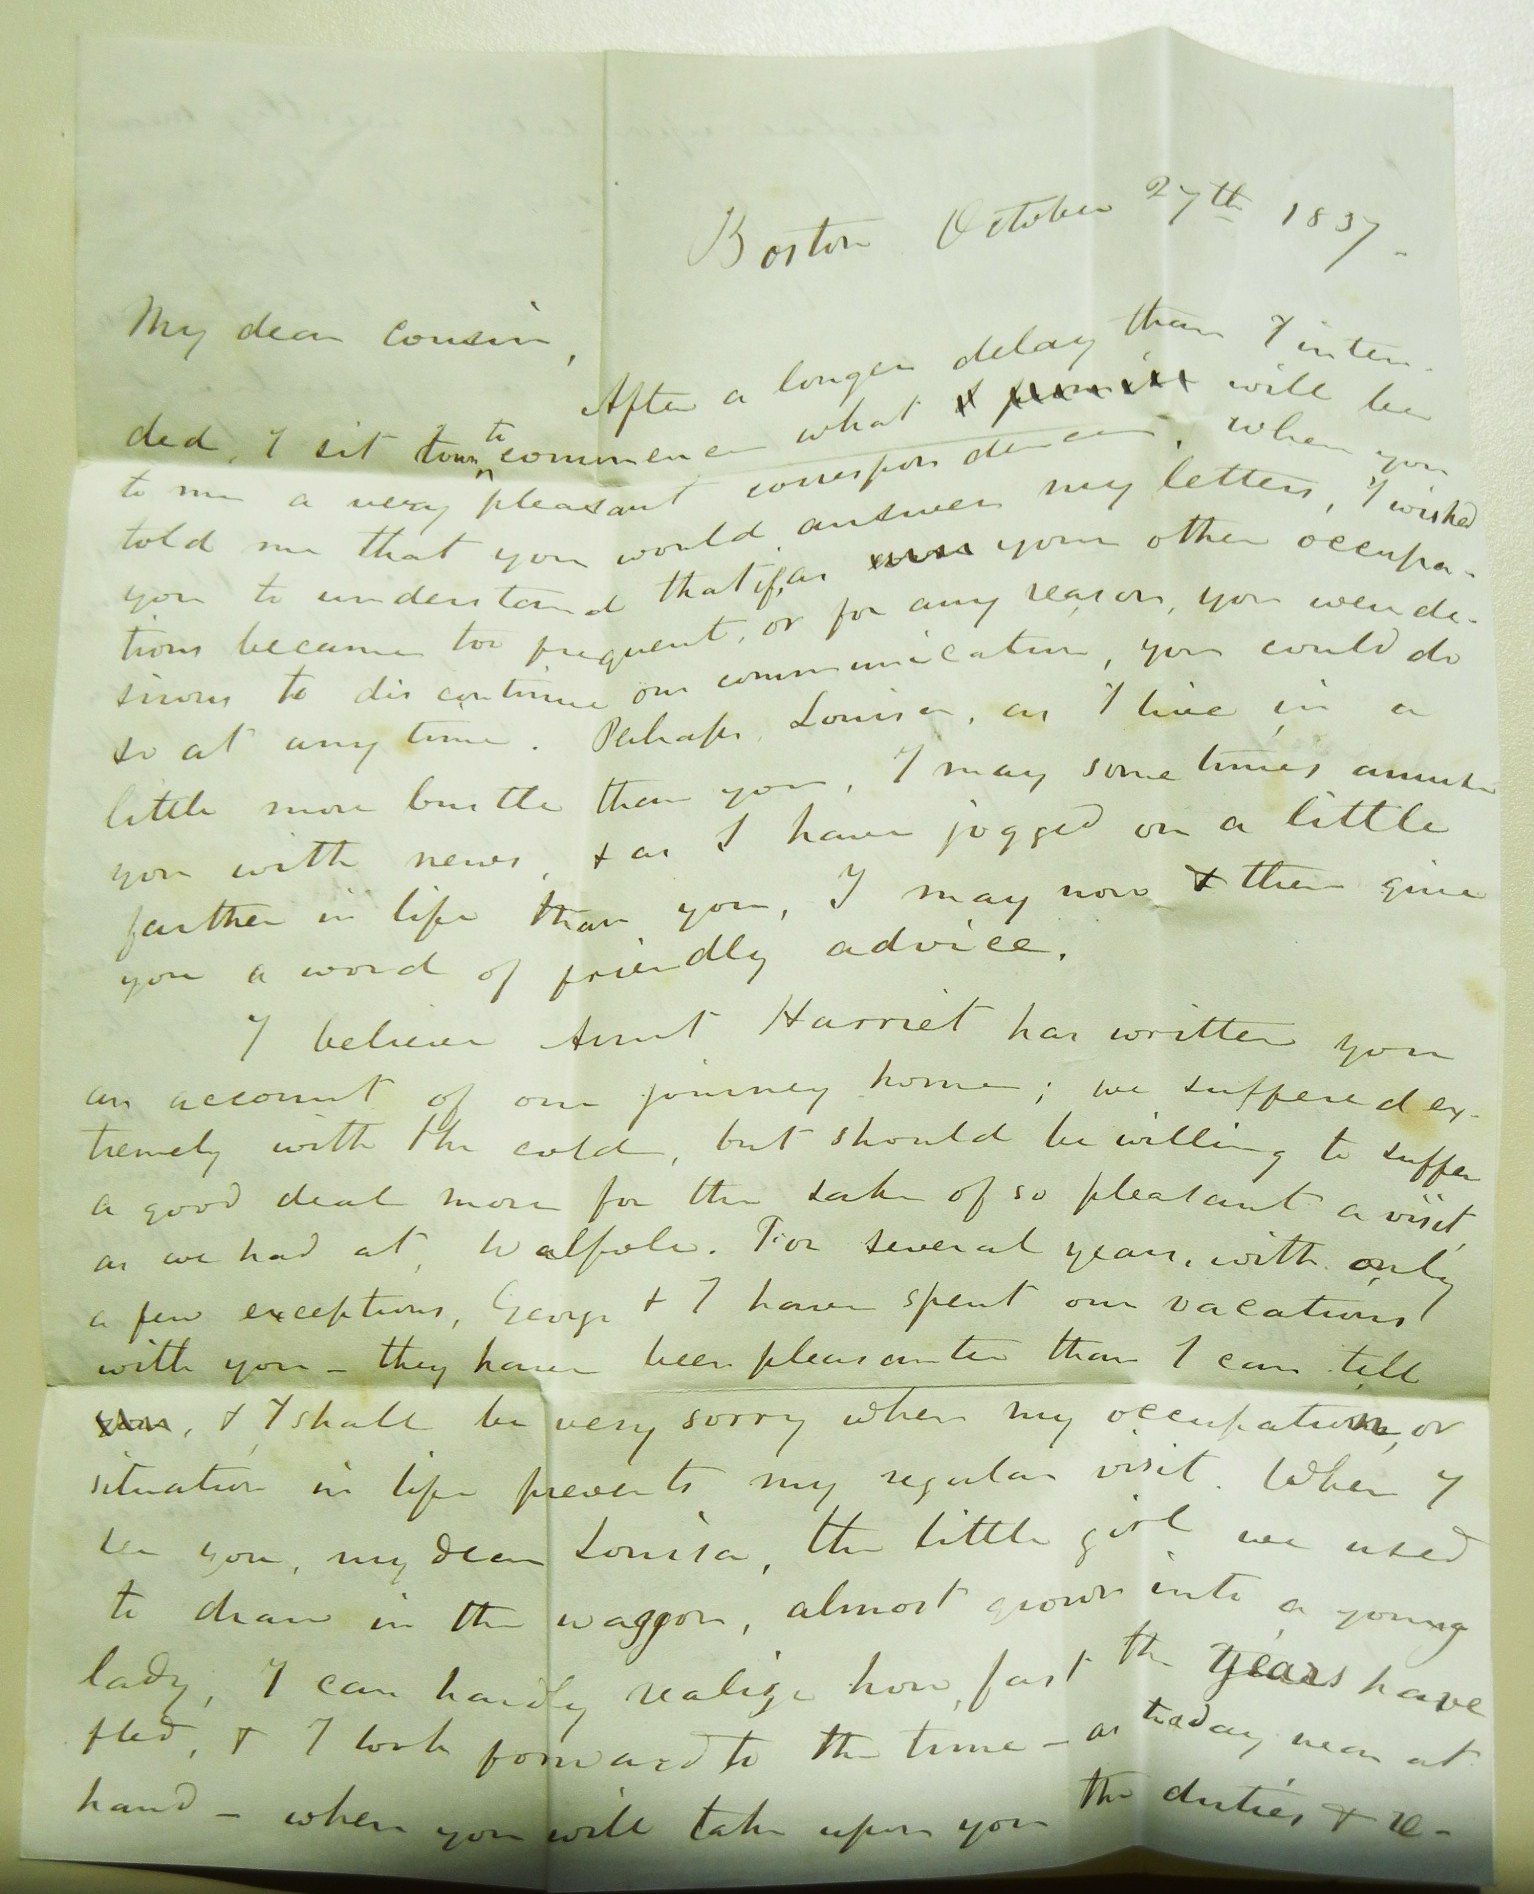 Boston October 27th 1837.
My dear Cousin,
After a longer delay than I inten-
ded, I sit down to commence what I promise will be
to me a very pleasant correspondence. When you
told me that you would answer my letters, I wished
you to understand that if, as your other occupa-
tions became too frequent, or for any reason, you were de-
sirous to discontinue our communication, you could do
so at any time. Perhaps, Louisa, as I live in a
little more bustle than you, I may sometimes amuse
you with news, & as I have jogged on a little
farther in life than you, I may now & then give
you a word of friendly advice.
I believe Aunt Harriet has written you
an account of our journey home; we suffered ex-
tremely with the cold, but should be willing to suffer
a good deal more for the sake of so pleasant a visit,
as we had at Walpole. For several years, with only
a few exceptions, George & I have spent our vacations
with you – they have been pleasanter than I can tell
you, & I shall be very sorry when my occupation, or
situation in life prevents my regular visit. When I
see you, my dear Louisa, the little girl we used
to draw in the waggon, almost grown into a young
lady, I can hardly realize how fast the years have
fled, & I look forward to the time – as today near at
hand – when you will take upon you the duties & re-